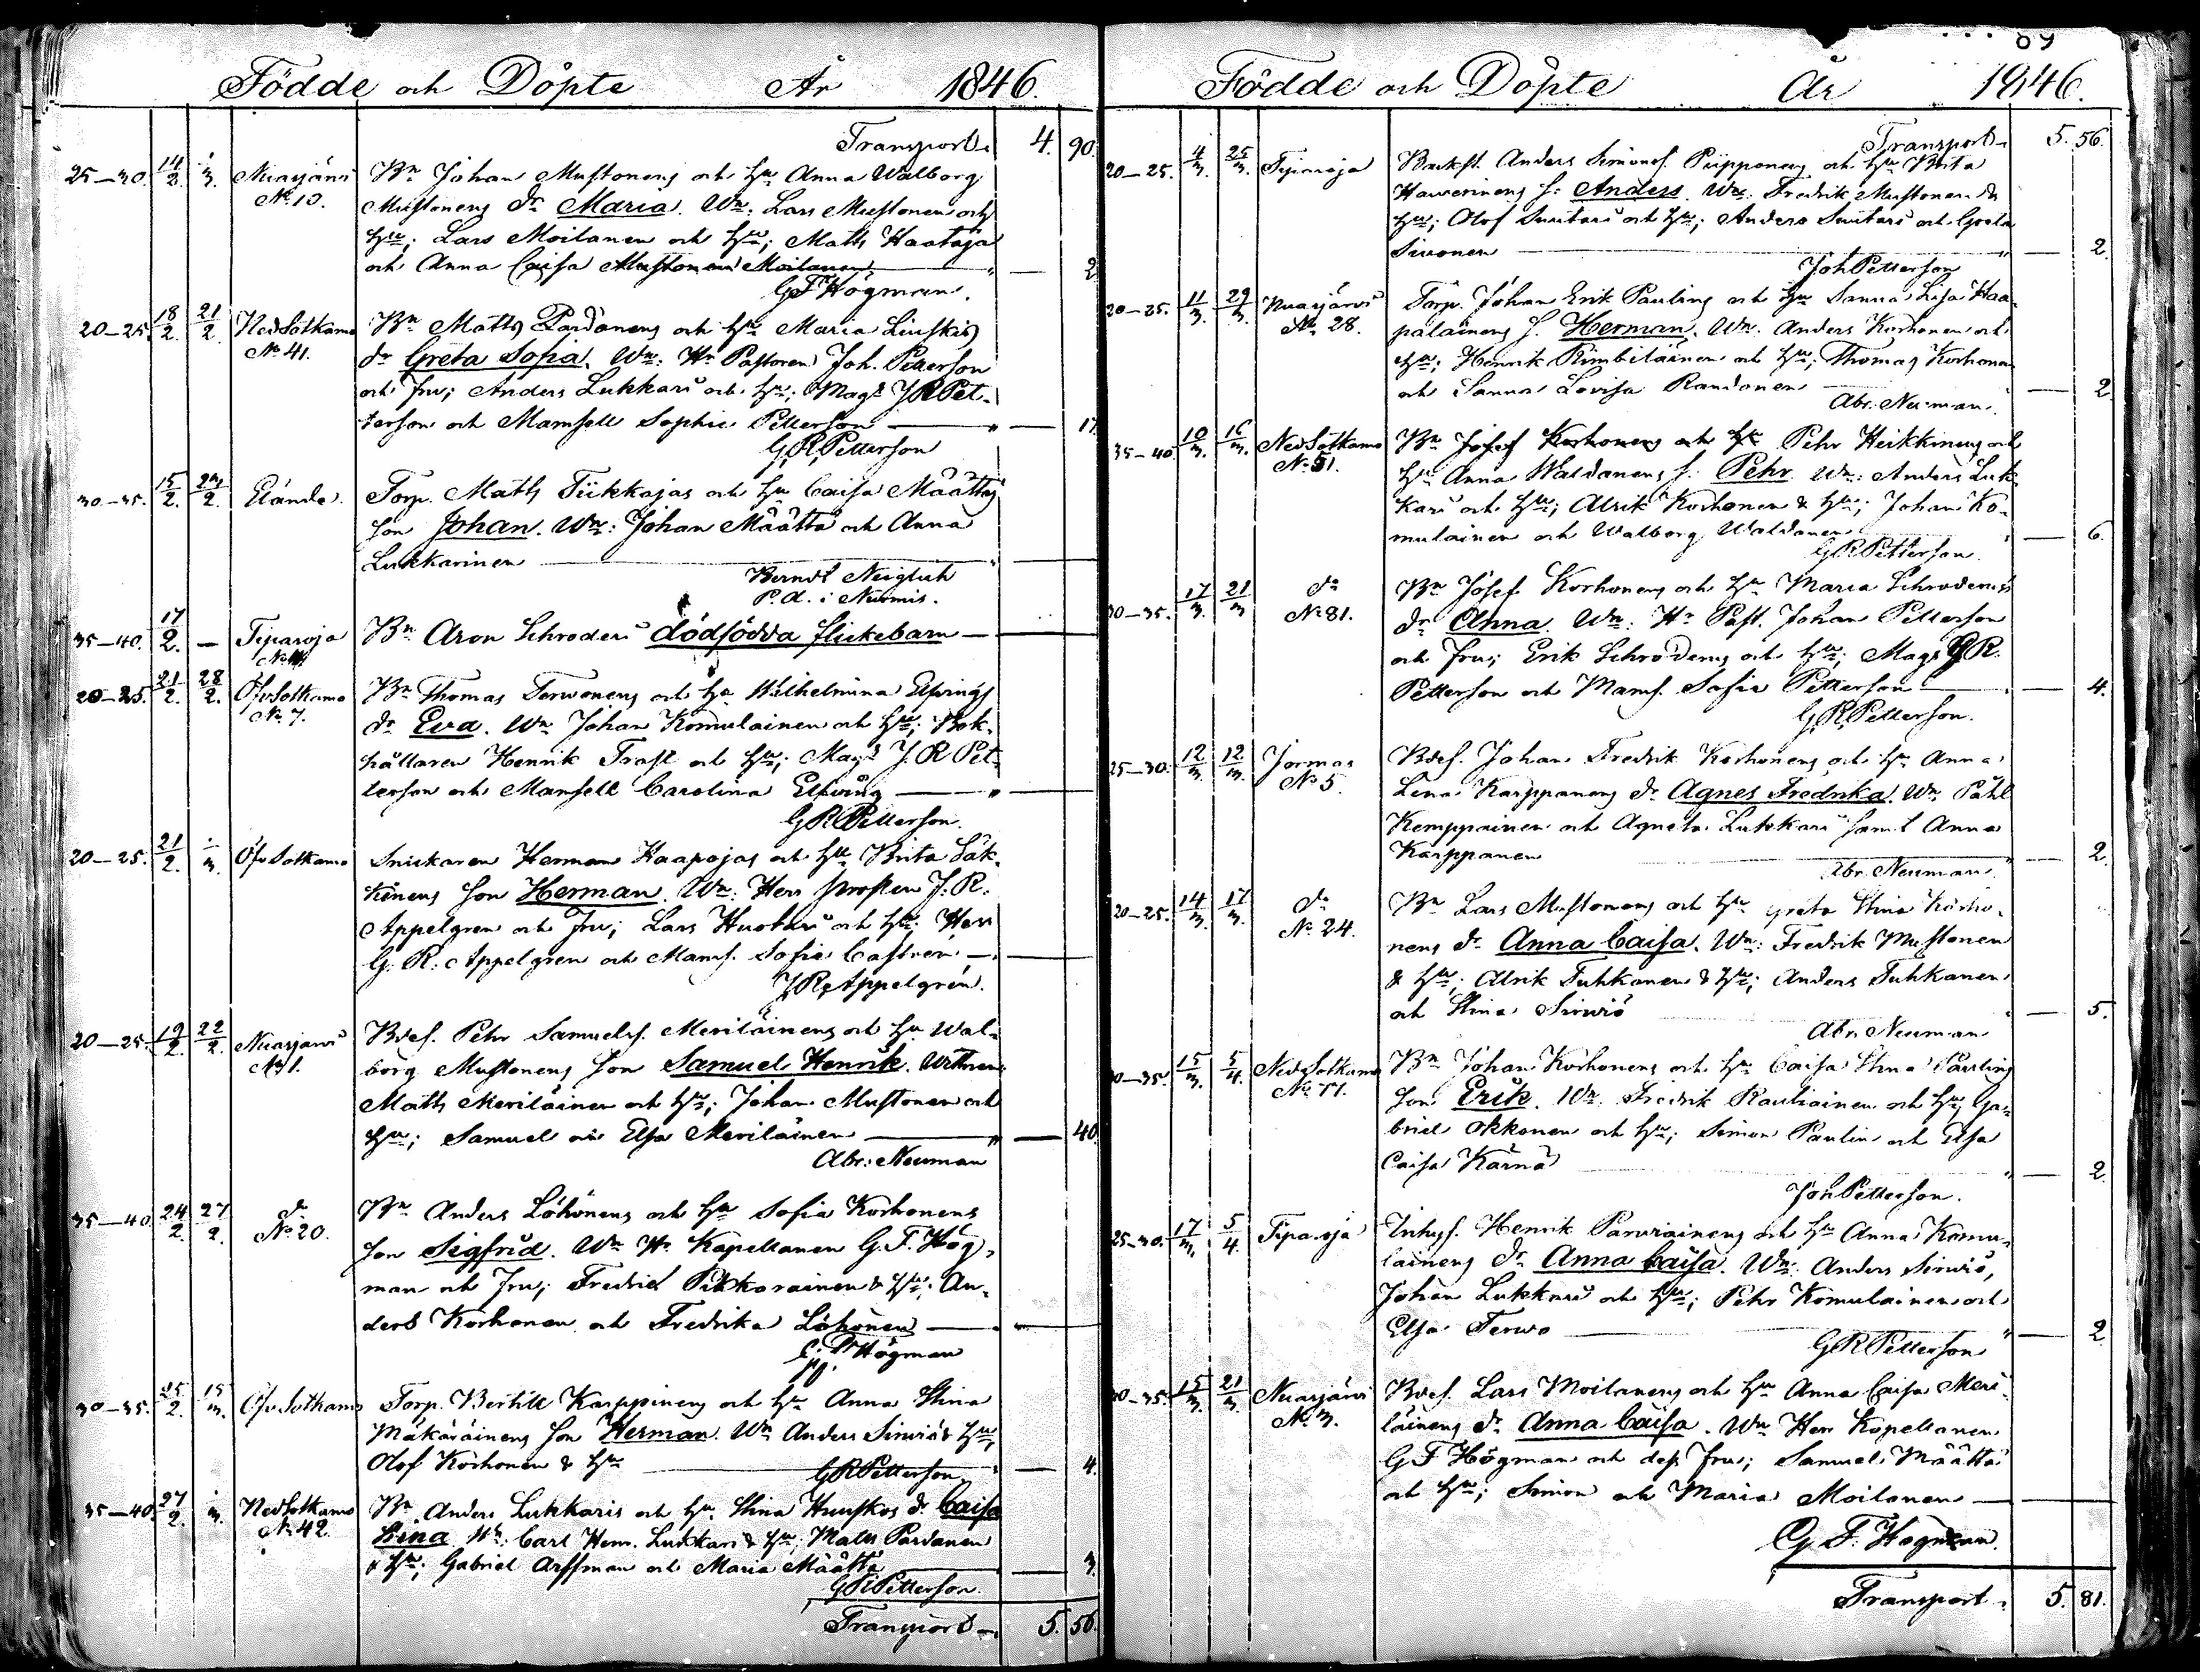 Födde och Döpte År 1846.
Transport. 4. 90.
25—30. 14/2. 1/3. Nuasjärvi Bn Johan Mustonens och Hu Anna Walborg
No 10. Mustonens dr Maria. Wn: Lars Mustonen och
Hu; Lars Moilanen och Hu; Matts Haataja
och Anna Caisa Moilanen — 2
G F Högman.
20—25. 18/2. 21/2. Ned Sotkamo Bn Matts Pardanens och Hu Maria Liuskis
No 41. dr Greta Sofia. Wn: Hr Pastoren Joh. Petterson
och Fru; Anders Lukkari och Hu; Magr J R Pet-
terson och Mamsell Sophie Petterson — 17
G R Petterson
30—35. 15/2. 2/2. Elände. Torp. Matts Tiikkajas och Hu Caisa Määttäs
son Johan. Wn: Johan Määttä och Anna
Lukkarinen —
Berndt Neiglick
P. A. i Nurmis.
35—40. 17/2. — Tiparoja Bn Aron Schroderi dödfödda flickebarn —
20—25. 21/2. 28/2. Öfv Sotkamo Bn Thomas Terwonens och Hu Wilhelmina Elfvings
No 7. dr Eva. Wn Johan Komulainen och Hu; Bok-
hållaren Henrik Trast och Hu; Magr J. R Pet-
terson och Mamsell Carolina Elfving —
G R Petterson.
20—25. 21/2. 1/3. Öfv Sotkamo Snickaren Herman Haapojas och Hu Brita Säk-
kinens son Herman. Wn: Herr Prosten J. R.
Appelgren och Fru; Lars Huotari och Hu; Herr
G. R. Appelgren och Mams. Sofia Castren —
J R Appelgrén.
20—25. 19/2. 22/2. Nuasjärvi Bdes. Pehr Samuels. Meriläinens och Hu Wal-
No 1. borg Mustonens son Samuel Henrik. Wittnen
Matts Meriläinen och Hu; Johan Mustonen och
Hu; Samuel och Elsa Meriläinen — 40
Abr: Neuman
35—40. 24/2. 27/2. do Bn Anders Löhönens och Hu Sofia Korhonens
No 20. son Sigfrid. Wn Hr Kapellanen G. F. Hög-
man och Fru; Fredric Pikkarainen & Hu; An-
ders Korhonen och Fredrika Löhönen —
G. F. Högman
30—35. 25/2. 15/3. Öfv Sotkamo Torp. Bertill Karppinens och Hu Anna Stina
Mäkäräinens son Herman. Wn Anders Sirviö & Hu;
Olof Korhonen & Hu — 4.
G R Petterson
35—40. 27/2. 1/3. Ned Sotkamo Bn Anders Lukkaris och Hu Stina Huuskos dr Caisa
No 42. Stina Wn. Carl Henr. Lukkari & Hu; Matts Pardanen
& Hu; Gabriel Arffman och Maria Määttä — 3.
G R Petterson.
Transport — 5. 56.
Födde och Döpte År 1846.
Transport. 5. 56.
20—25. 4/3. 25/3. Tiparoja Backst. Anders Simons. Piipponens och Hu Brita
Haverinens s: Anders. Wn. Fredrik Mustonen &
Hu; Olof Suutari och Hu; Anders Suutari och Greta
Sivonen — 2
Joh Petterson
20—25. 11/3. 29/3. Nuasjärvi Torp. Johan Erik Paulins och Hu Sanna Lisa Haa-
No 28. palainens s. Herman. Wn. Anders Korhonen och
Hu; Henrik Rimbiläinen och Hu; Thomas Korhonen
och Sanna Lovisa Randonen — 2
Abr. Neuman.
35—40. 10/3. 16/3. Ned Sotkamo Bn Josef Korhonens och Hu Pehr Heikkinens och
No 51. Hu Anna Waldanens s: Pehr. Wn: Anders Luk-
kari och Hu; Alrik Korhonen & Hu; Johan Ko-
mulainen och Walborg Waldanen — 6.
G R Petterson.
30—35. 17/3 21/3 do Bn Josef Korhonens och Hu Maria Schroderus
No 81. dr Anna. Wn: Hr Past. Johan Petterson
och Fru; Erik Schroderus och Hu; Magr J R.
Petterson och Mams. Sofia Petterson — 4.
G R Petterson.
25—30. 12/3. 12/3. Jormas Bdes. Johan Fredrik Korhonens och Hu Anna
No 5. Lena Karppanens dr Agnes Fredrika. Wn. Påhl
Kemppainen och Agneta Lukkari samt Anna
Karppanen — 2.
Abr. Neuman.
20—25. 14/3. 17/3. do Bn Lars Mustonens och Hu Greta Stina Korho-
No 24. nens dr Anna Caisa. Wn: Fredrik Mustonen
& Hu; Alrik Tuhkanen & Hu; Anders Tuhkanen
och Stina Sirviö — 5.
Abr. Neuman
30—35 15/3. 5/4. Ned Sotkamo Bn Johan Korhonens och Hu Caisa Stina Paulins
No 77. son Erik. Wn. Fredrik Rautiainen och Hu; Ga-
briel Okkonen och Hu; Simon Paulin och Elsa
Caisa Kärnä — 2.
Joh Petterson.
25—30. 17/3. 5/4. Tiparoja Inhys. Henrik Parviainens och Hu Anna Komu-
lainens dr Anna Caisa. Wn: Anders Sirviö,
Johan Lukkari och Hu; Pehr Komulainen och
Elsa Terwo — 2
G R Petterson
30—35. 15/3. 21/3. Nuasjärvi Bdes. Lars Moilanens och Hu Anna Caisa Meri-
No 3. läinens dr Anna Caisa. Wn Herr Kapellanen
G F Högman och dess Fru; Samuel Määttä
och Hu; Simon och Maria Moilanen —
G. F. Högman.
Transport. 5. 81.